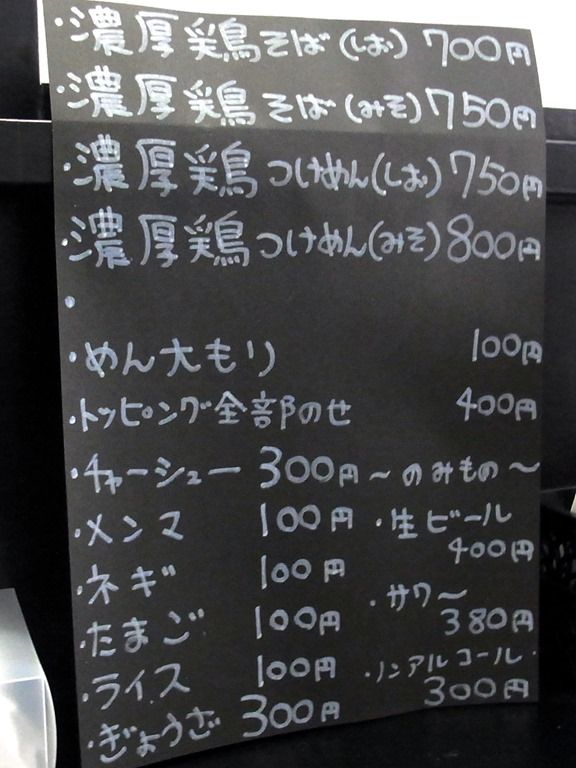 ・濃厚鶏そば(しお) 700円
・濃厚鶏そば(みそ) 750円
・濃厚鶏つけめん(しお) 750円
・濃厚鶏つけめん(みそ) 800円
・
・めん大もり 100円
・トッピング全部のせ 400円
・チャーシュー 300円
・メンマ 100円
・ネギ 100円
・たまご 100円
・ライス 100円
・ぎょうざ 300円
～のみもの～
・生ビール
400円
・サワ～
380円
・ノンアルコール・
300円